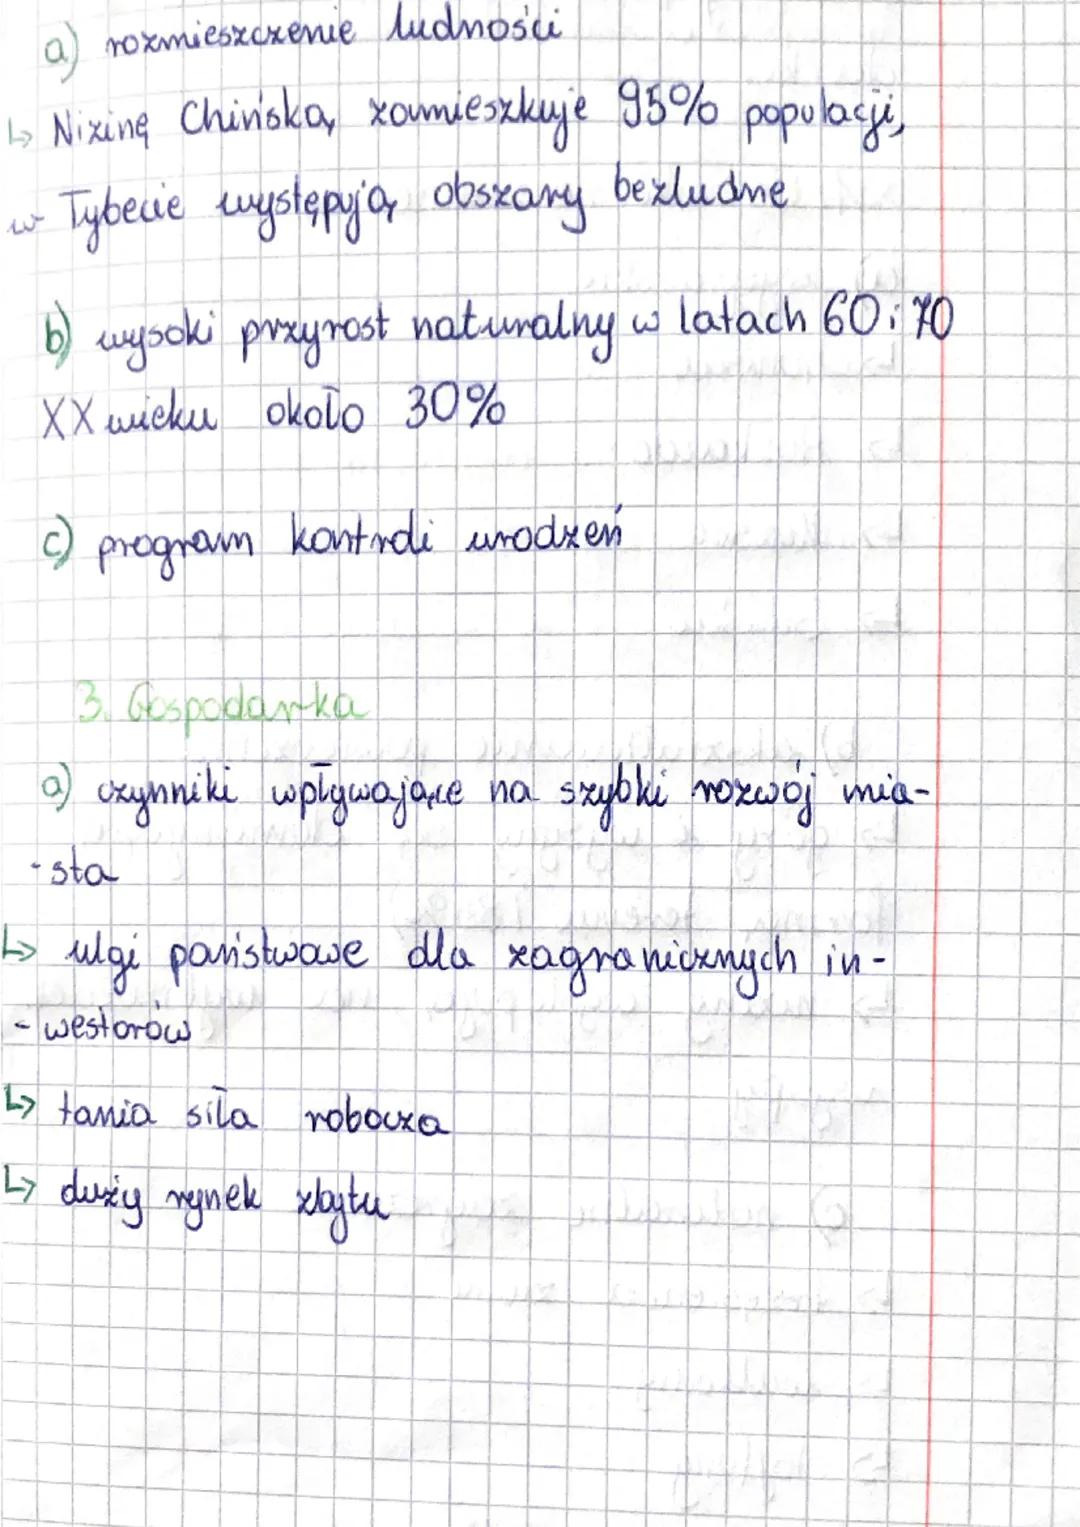 a) rozmieszczenie ludności
↳ Nizinę Chińską zamieszkuje 95% populacji,
w Tybecie występują obszary bezludne
b) wysoki przyrost naturalny w latach 60 i 70
XX wieku około 30%
c) program kontroli urodzeń
3. Gospodarka
a) czynniki wpływające na szybki rozwój mia-
-sta
↳ ulgi państwowe dla zagranicznych in-
-westorów
↳ tania siła robocza
↳ duży rynek zbytu